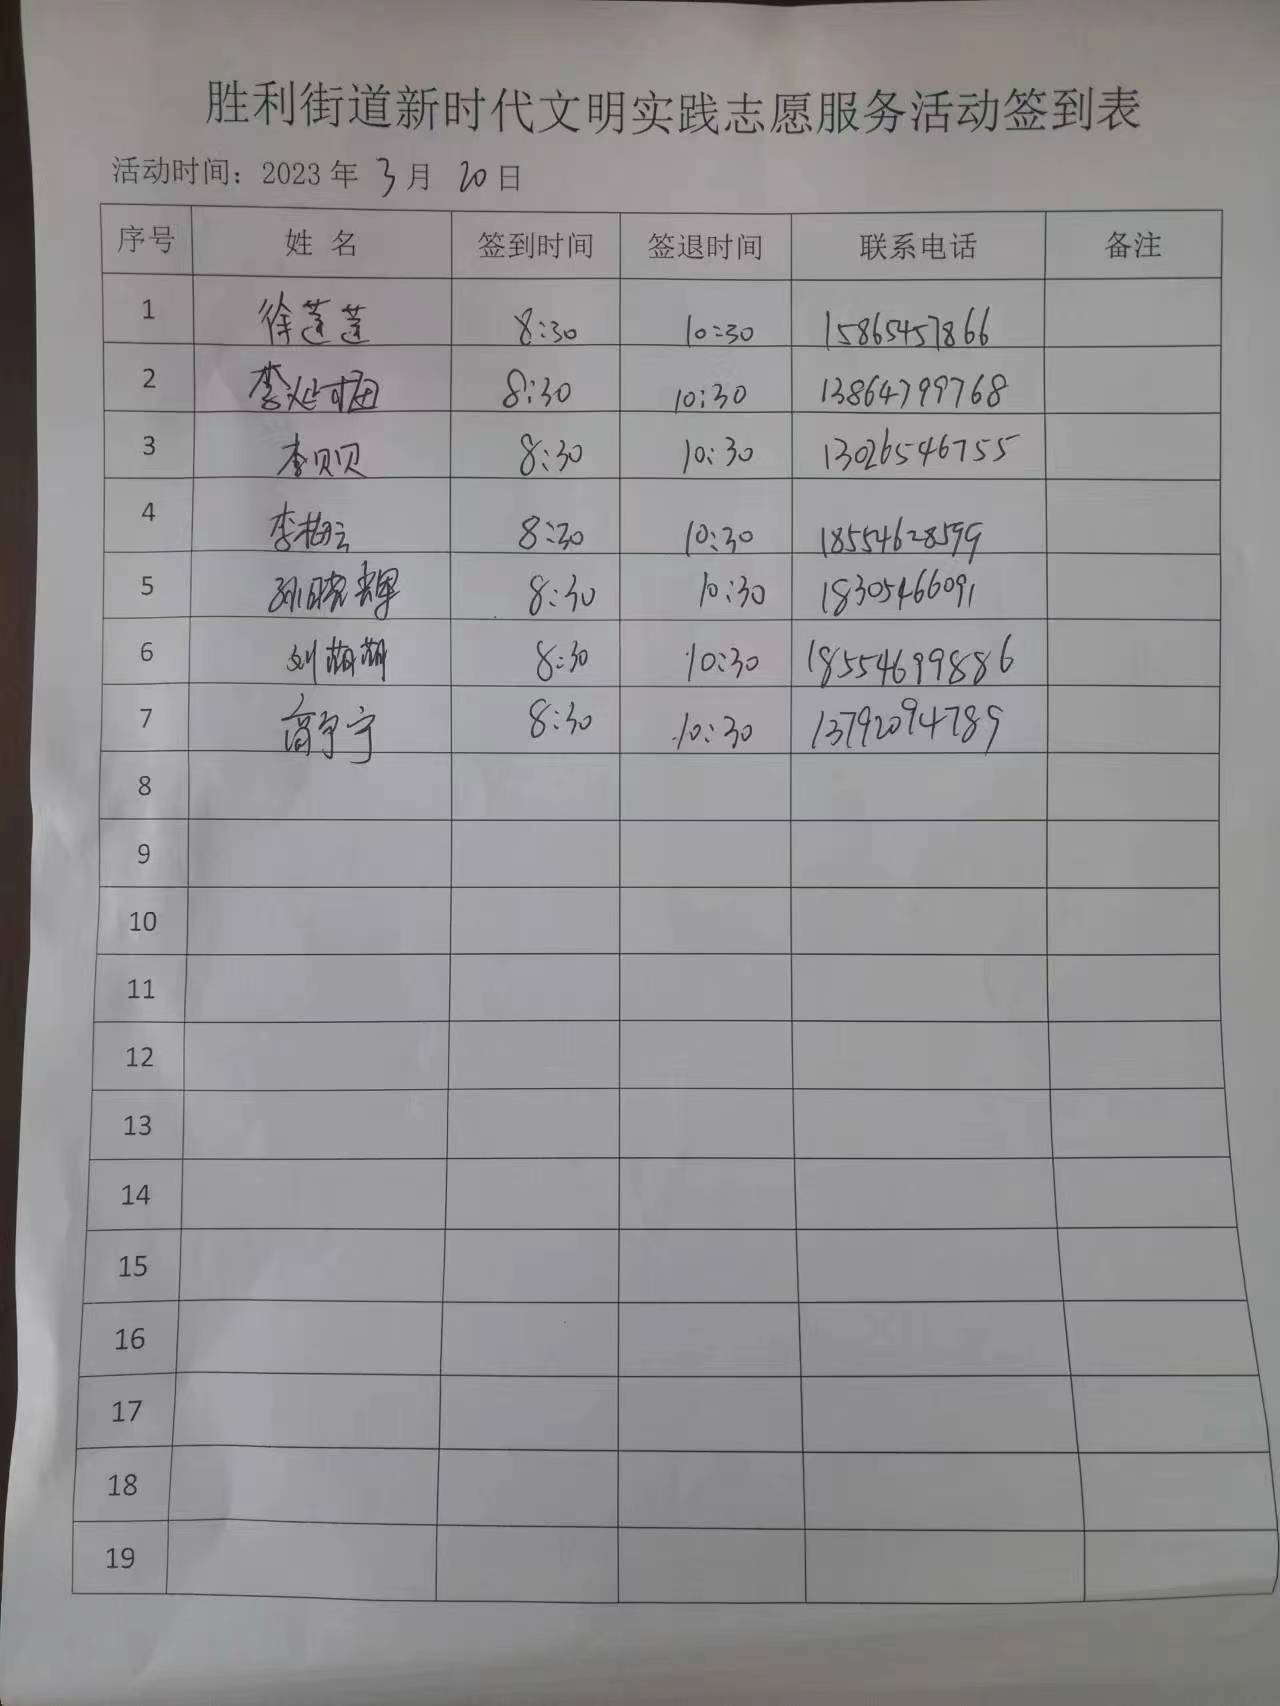 胜利街道新时代文明实践志愿服务活动签到表
活动时间：2023 年 3 月 20 日
序号 姓 名 签到时间 签退时间 联系电话 备注
1 徐莲莲 8:30 10:30 15865457866
2 李延梅 8:30 10:30 13864799768
3 李贝贝 8:30 10:30 13026546755
4 李梅云 8:30 10:30 18554628599
5 孙晓辉 8:30 10:30 18305466091
6 刘萌萌 8:30 10:30 18554699886
7 高宁宁 8:30 10:30 13792094789
8
9
10
11
12
13
14
15
16
17
18
19